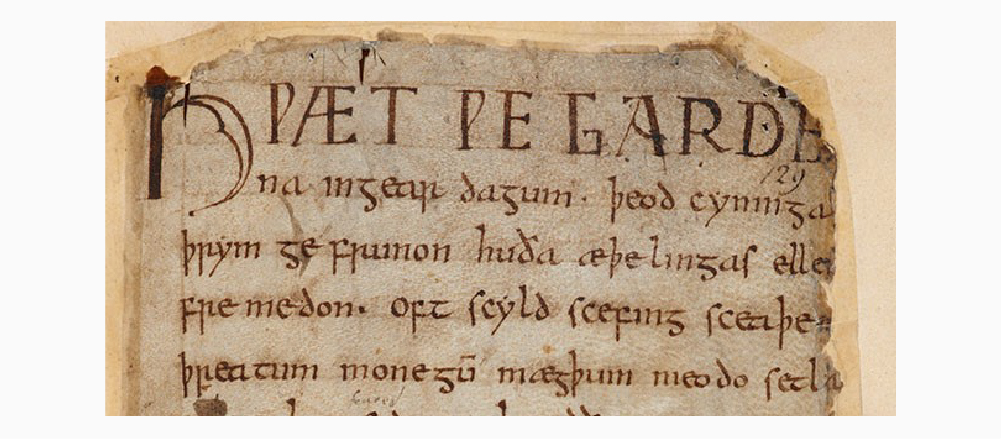 HǷÆT ǷE GARDE
129
na ingear dagum. þeod cyninga
þrym ge frunon huða æþelingas elle
fre medon. oft scyld scefing sceaþe
þreatum monegū mægþum meodo setla